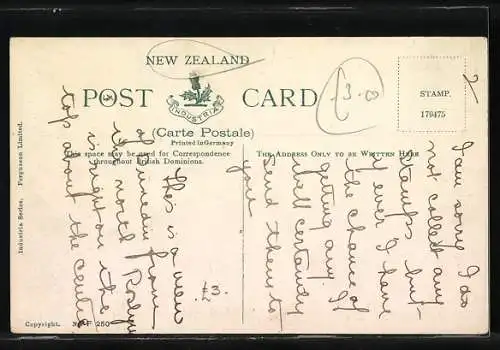 NEW ZEALAND
POST CARD
INDUSTRIA
(Carte Postale)
Printed in Germany
This space may be used for Correspondence
throughout British Dominions.
THE ADDRESS ONLY TO BE WRITTEN HERE
STAMP.
179475
£3.0
2/-
Industria Series. Fergusson Limited.
This is a view
of Dunedin from
north. Roslyn
is right on the
top about the centre
£3.
I am sorry I do
not collect any
stamps but
if ever I have
the chance of
getting any I
shall certainly
send them to
you
Copyright. F 250